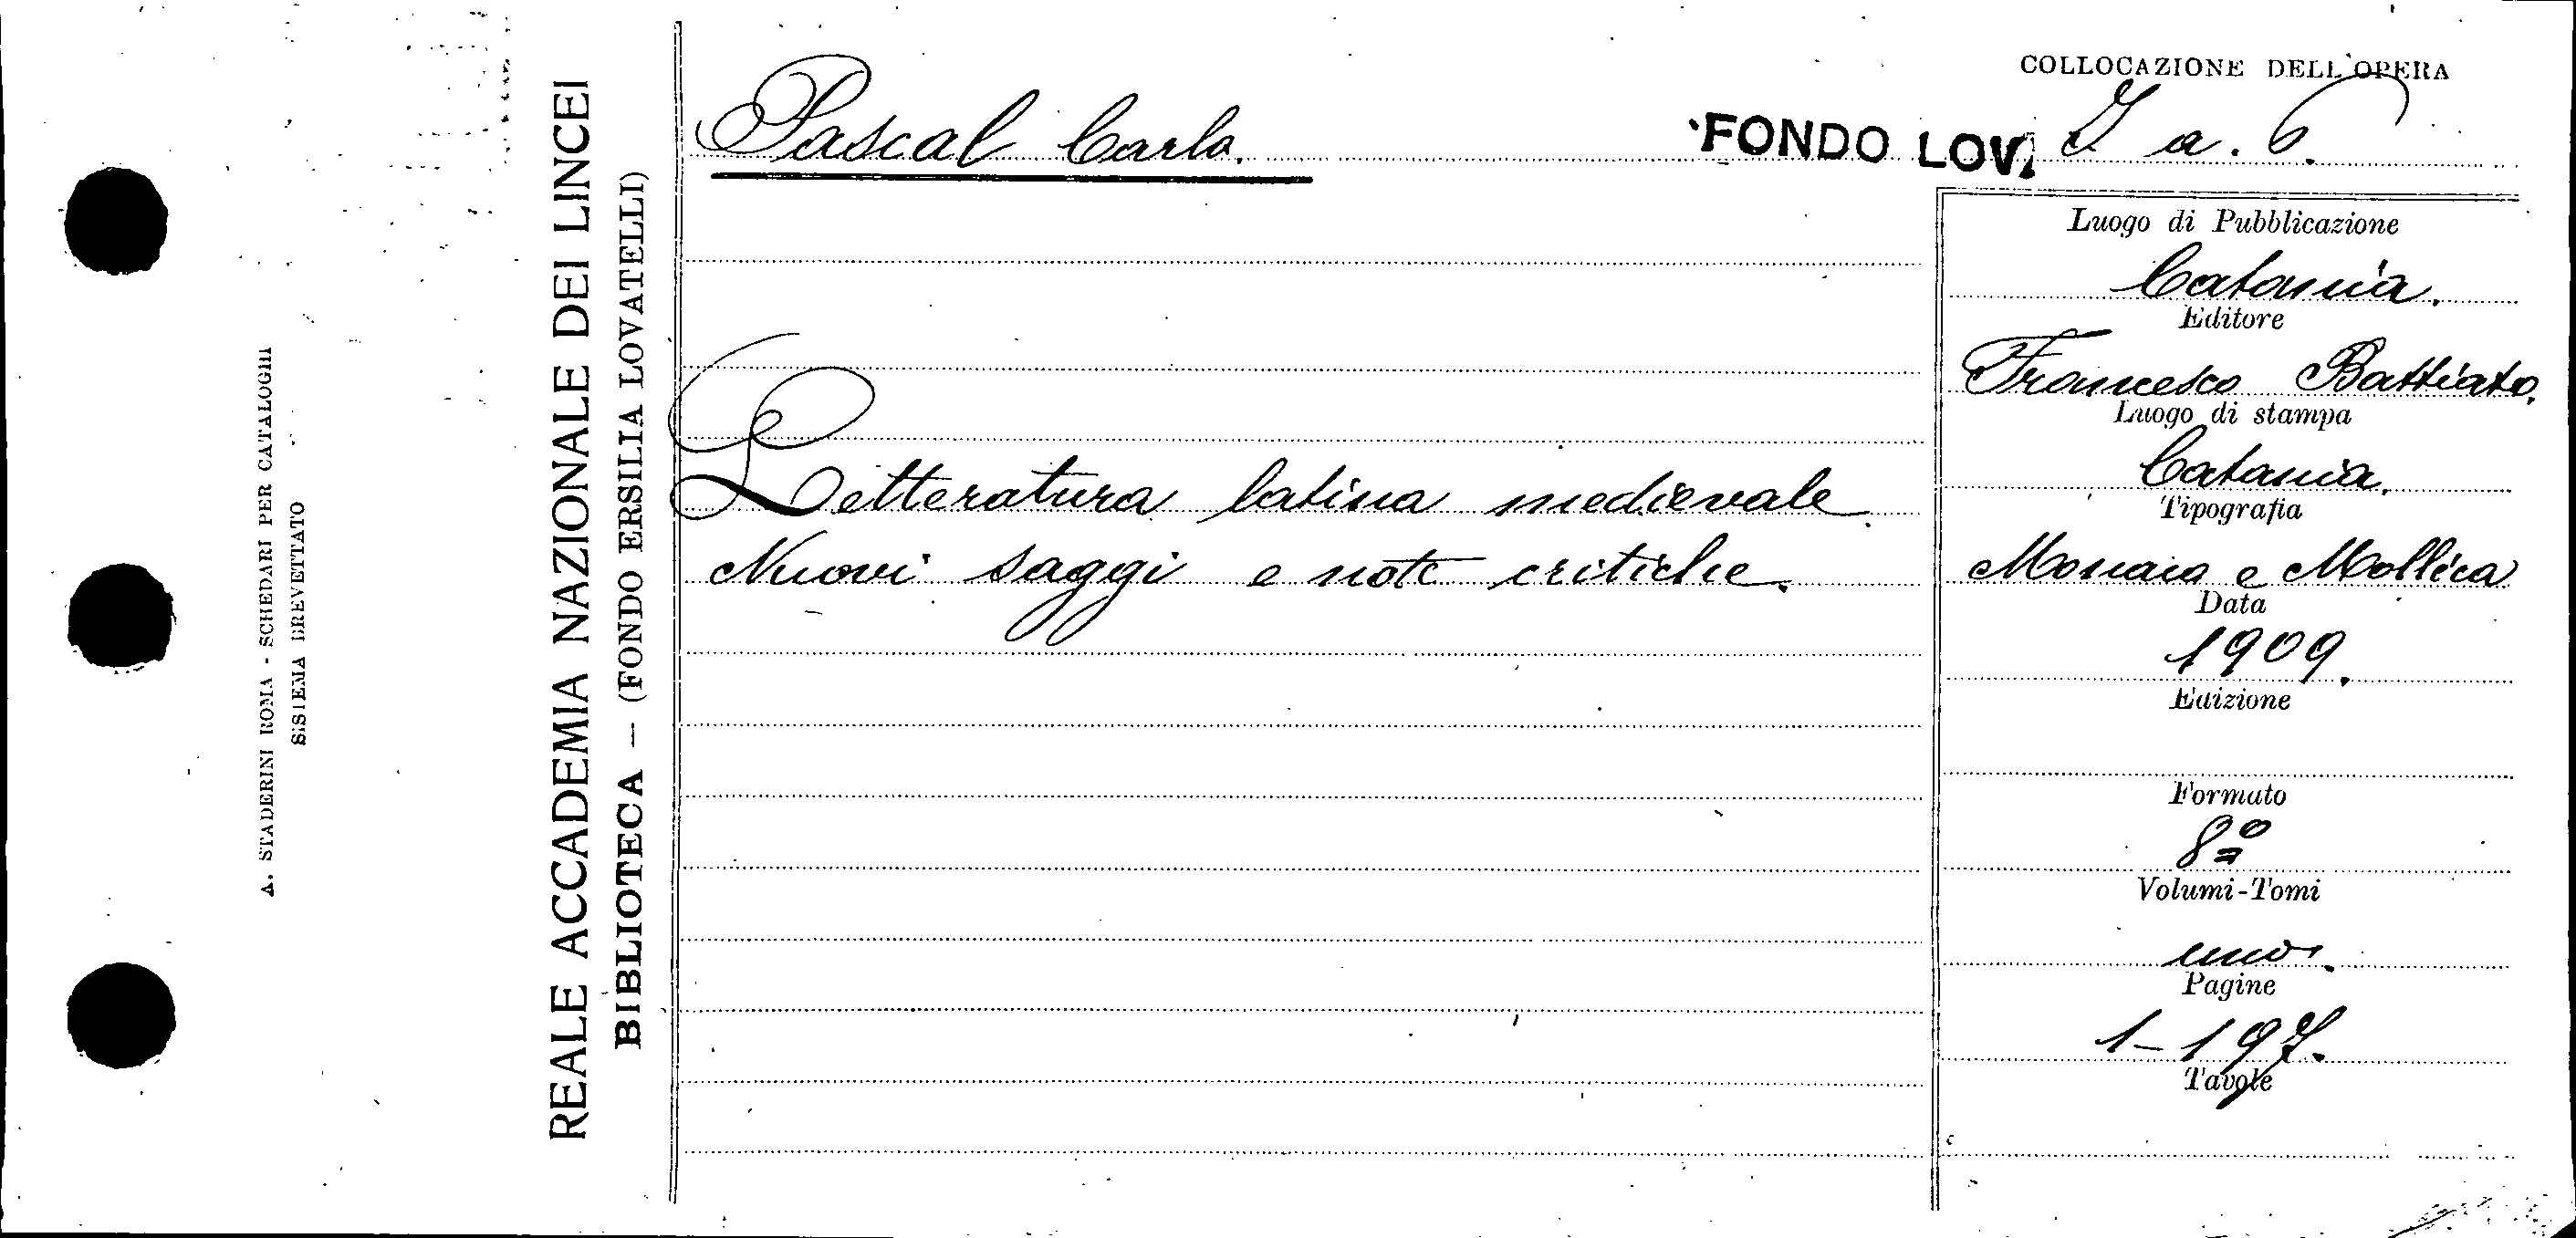 A. STADERINI ROMA - SCHEDARI PER CATALOGHI
SISTEMA BREVETTATO
REALE ACCADEMIA NAZIONALE DEI LINCEI
BIBLIOTECA – (FONDO ERSILIA LOVATELLI)
COLLOCAZIONE DELL'OPERA
Pascal Carlo.
FONDO LOV. I a. 6.
Letteratura latina medievale
Nuovi saggi e note critiche.
Luogo di Pubblicazione
Catania.
Editore
Francesco Battiato.
Luogo di stampa
Catania.
Tipografia
Monaco e Mollica
Data
1909.
Edizione
Formato
8º
Volumi-Tomi
uno.
Pagine
1-197.
Tavole